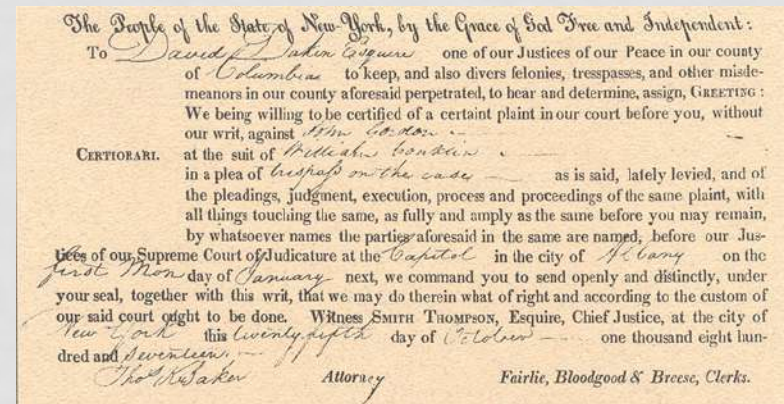 The People of the State of New-York, by the Grace of God Free and Independent:
To David Dakin Esquire one of our Justices of our Peace in our county
of Columbia to keep, and also divers felonies, tresspasses, and other misde-
meanors in our county aforesaid perpetrated, to hear and determine, assign, GREETING:
We being willing to be certified of a certaint plaint in our court before you, without
our writ, against John Gordon
CERTIORARI. at the suit of William Conklin
in a plea of trespass on the case as is said, lately levied, and of
the pleadings, judgment, execution, process and proceedings of the same plaint, with
all things touching the same, as fully and amply as the same before you may remain,
by whatsoever names the parties aforesaid in the same are named, before our Jus-
tices of our Supreme Court of Judicature at the Capitol in the city of Albany on the
first Mon day of January next, we command you to send openly and distinctly, under
your seal, together with this writ, that we may do therein what of right and according to the custom of
our said court ought to be done. Witness SMITH THOMPSON, Esquire, Chief Justice, at the city of
New York this twenty fifth day of October one thousand eight hun-
dred and seventeen.
Thos K Baker Attorney Fairlie, Bloodgood & Breese, Clerks.